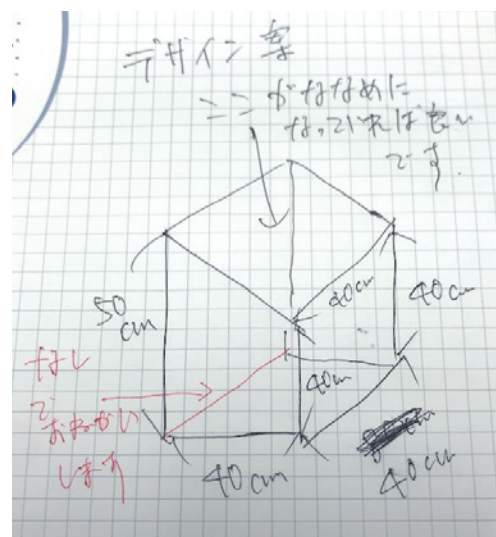 デザイン案
ここがななめに
なっていれば良い
です.
50
cm
40cm
40cm
40cm
なし
で
おねがい
します
40cm
40cm